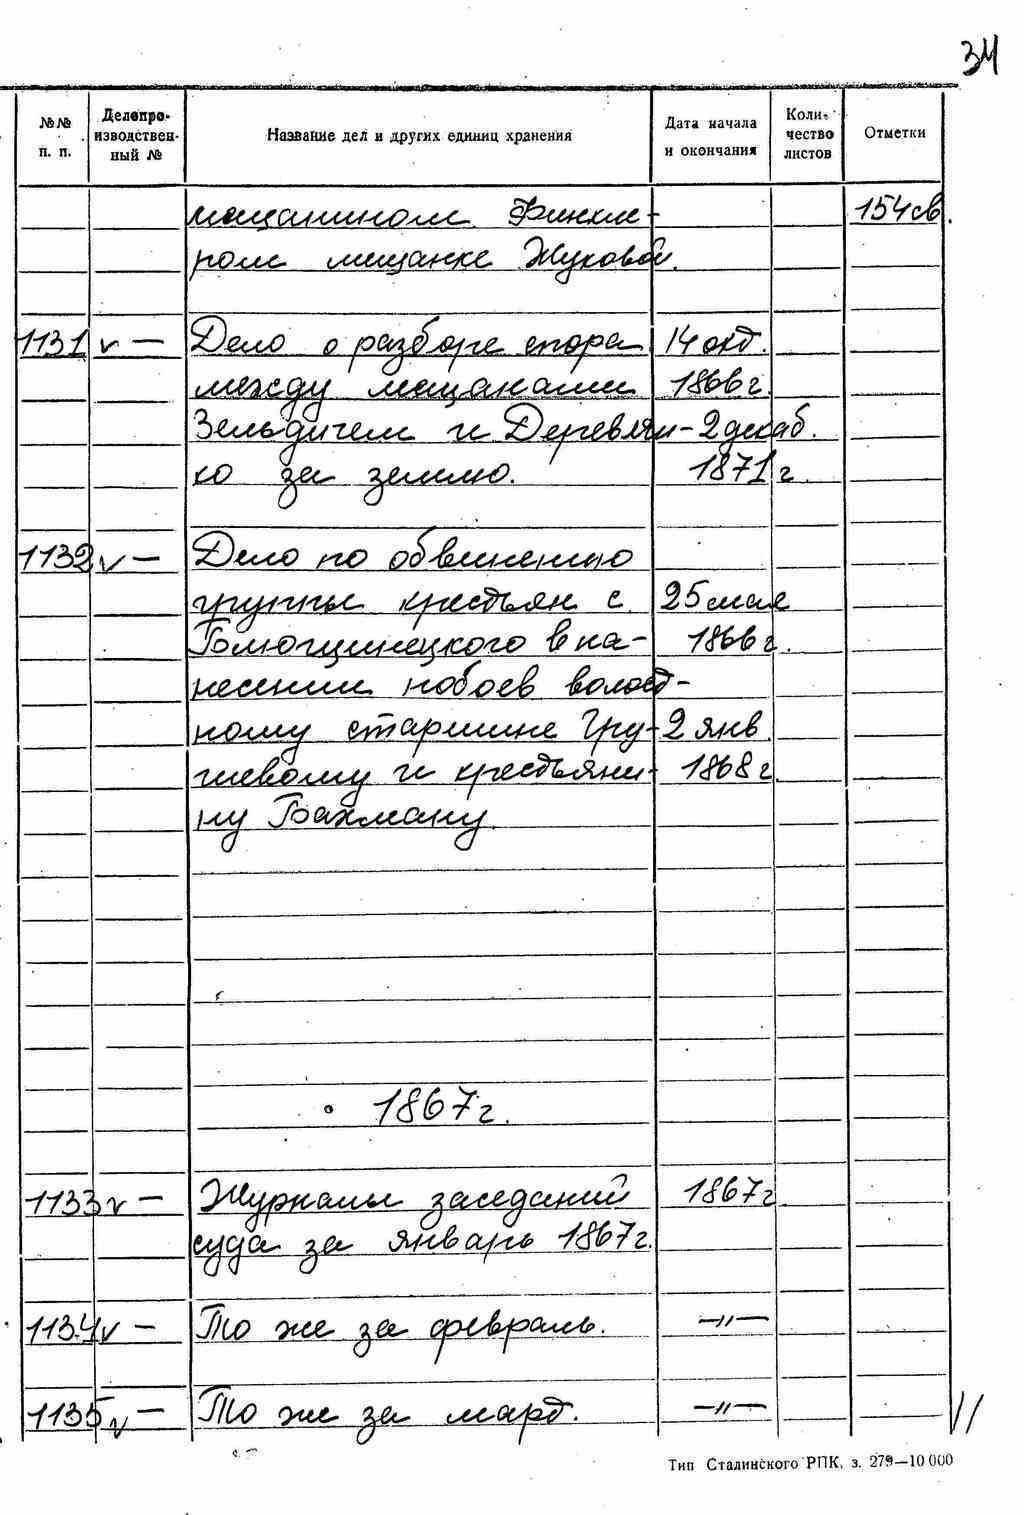 34
№№ п. п. Делопроизводственный № Название дел и других единиц хранения Дата начала и окончания Количество листов Отметки
мещанином Финкле- 154 св.
ром мещанке Жуковой.
1131 v — Дело о разборе спора 14 окт.
между мещанами 1866 г.
Зельдичем и Деревян- 2 декаб.
ко за землю. 1871 г.
1132 v — Дело по обвинению
группы крестьян с. 25 мая
в на- 1866 г.
несении побоев волост-
ному старшине Гру- 2 янв.
шевому и крестьяни- 1868 г.
ну Бахману.
1867 г.
1133 v — Журналы заседаний 1867 г.
суда за январь 1867 г.
1134 v — То же за февраль. —"—
1135 v — То же за март. —"—
Тип Сталинского РПК, з. 279—10 000